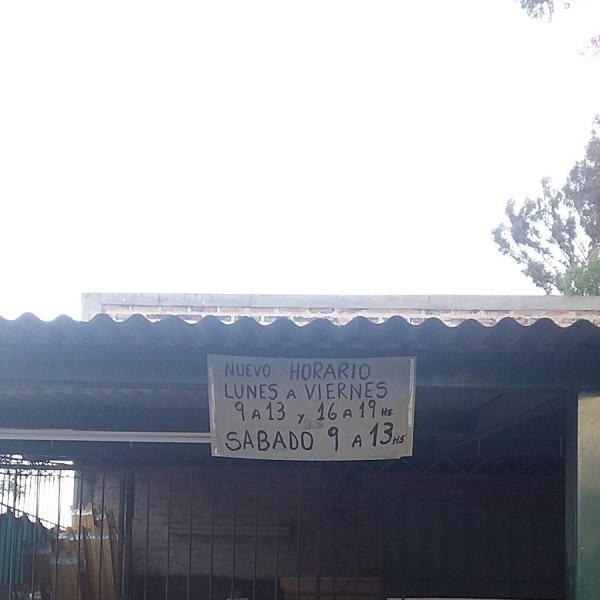 NUEVO HORARIO
LUNES A VIERNES
9 A 13 Y 16 A 19 HS
SABADO 9 A 13 HS